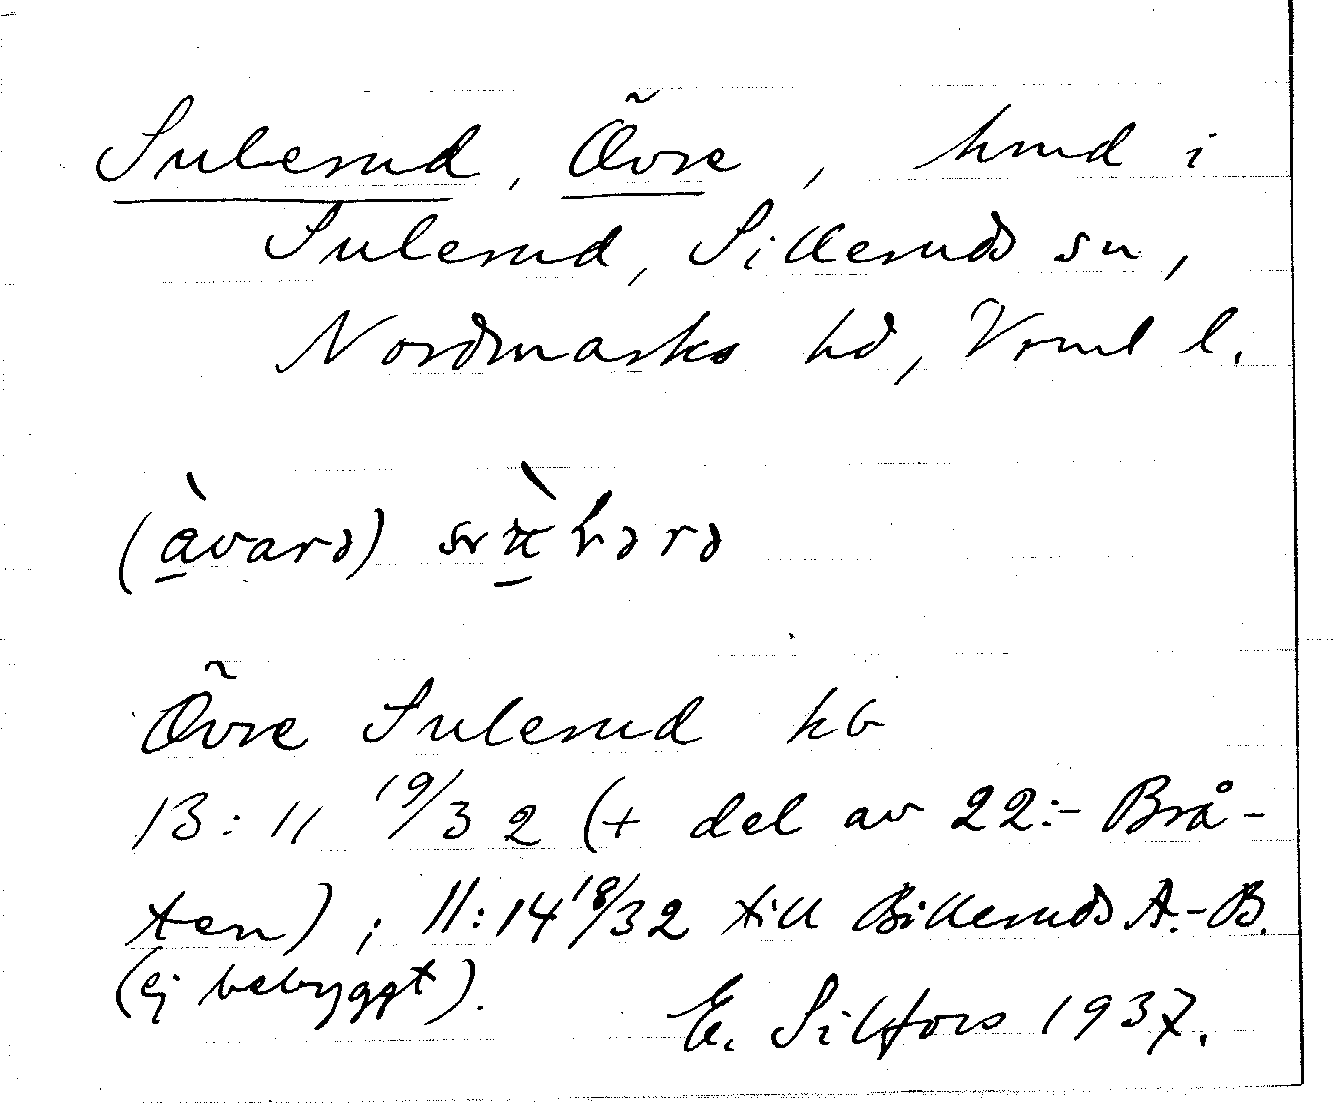 Sulerud, Övre, hmd i
Sulerud, Silleruds sn,
Nordmarks hd, Vrml l.
(àvarə)
Övre Sulerud kb
13:11 19/32 (+ del av 22:- Brå-
ten); 11:14 18/32 till Billeruds A.-B.
(ej bebyggt).
E. Silfors 1937.